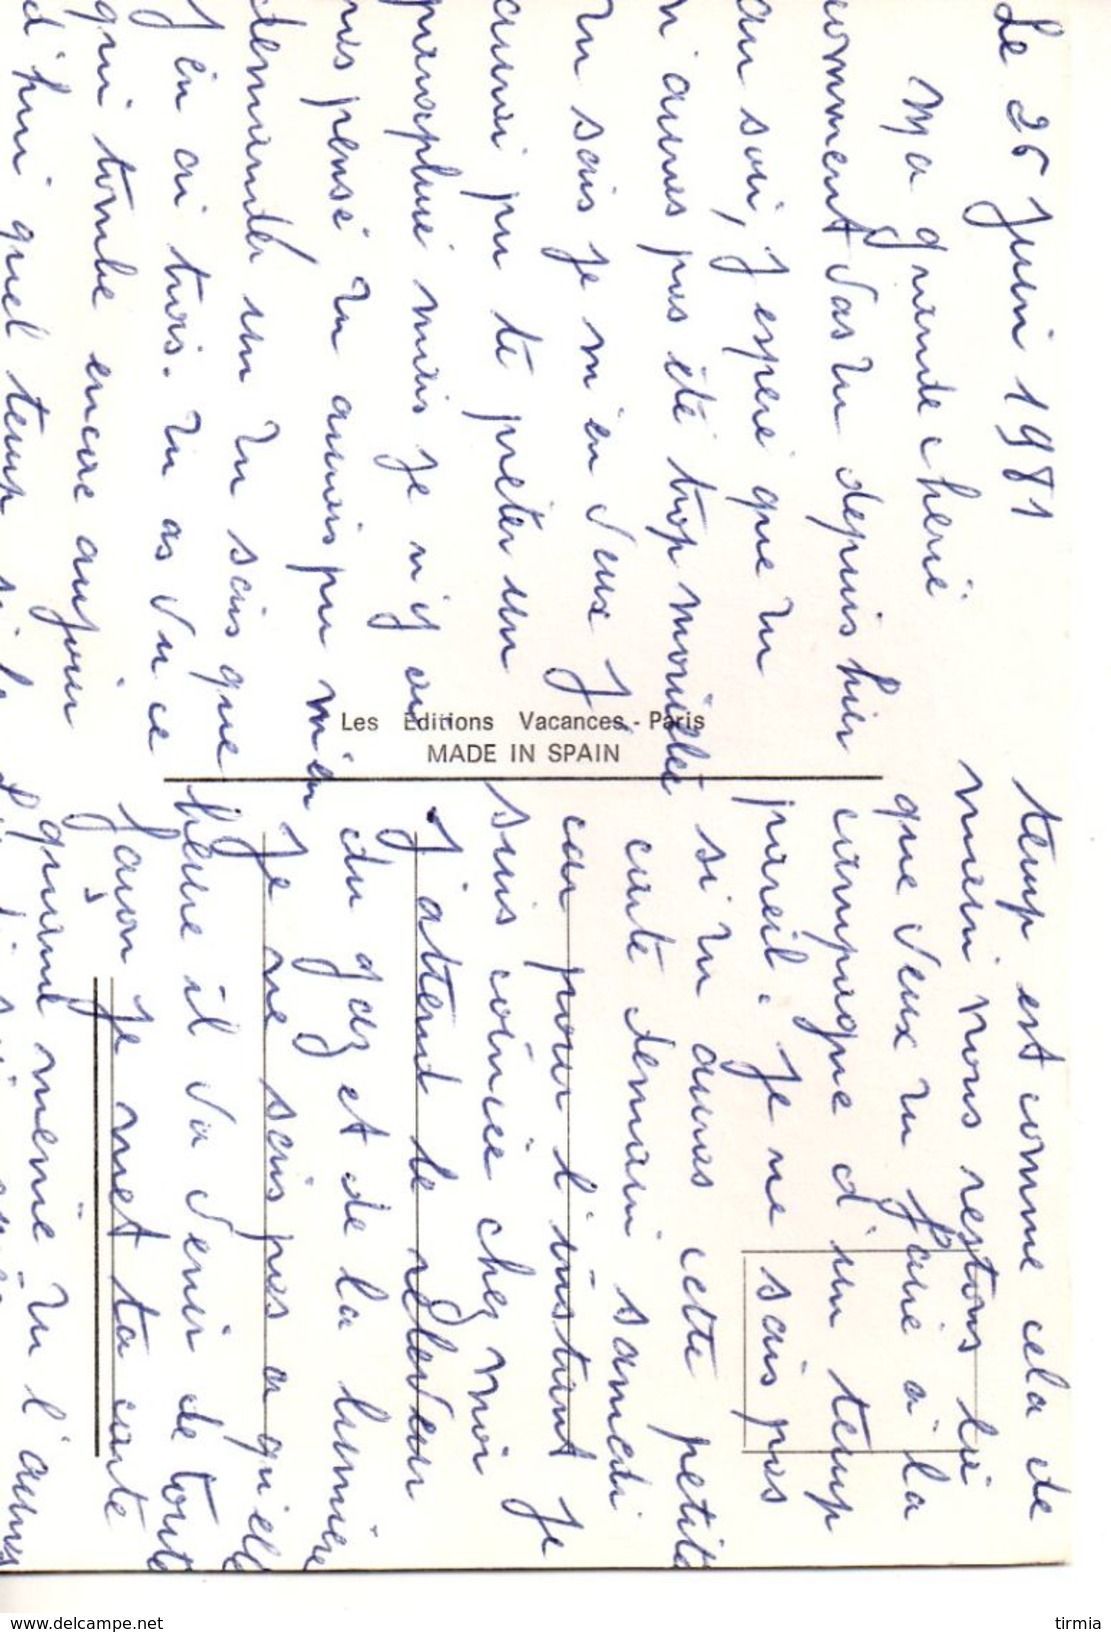 Le 26 Juin 1981
Ma grande cherie
comment vas tu depuis hier
au soir, j'espere que tu
n'auras pas été trop mouillée
Tu sais je m'en veux j'
aurai pu te preter un
parapluie mais je n'y ai
pas pensé tu aurais pu m'en
demander un tu sais que
J'en ai trois. Tu as vu ce
qui tombe encore aujour
d'hui quel temp si le
temp est comme cela de
main nous restons là
que veux tu faire à la
campagne d'un temp
pareil. Je ne sais pas
si tu auras cette petite
carte demain samedi
car pour l'instant Je
suis coincée chez moi
J'attend le releveur
du gaz et de la lumière
Je ne sais pas a qu'elle
heure il va venir de toute
façon Je met ta carte
quand même tu l'auras
Les Editions Vacances - Paris
MADE IN SPAIN
www.delcampe.net
tirmia